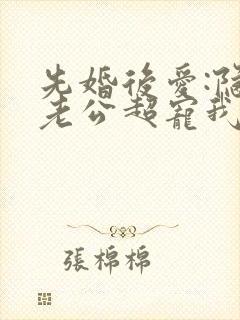 先婚後愛:
老公超寵我
張棉棉